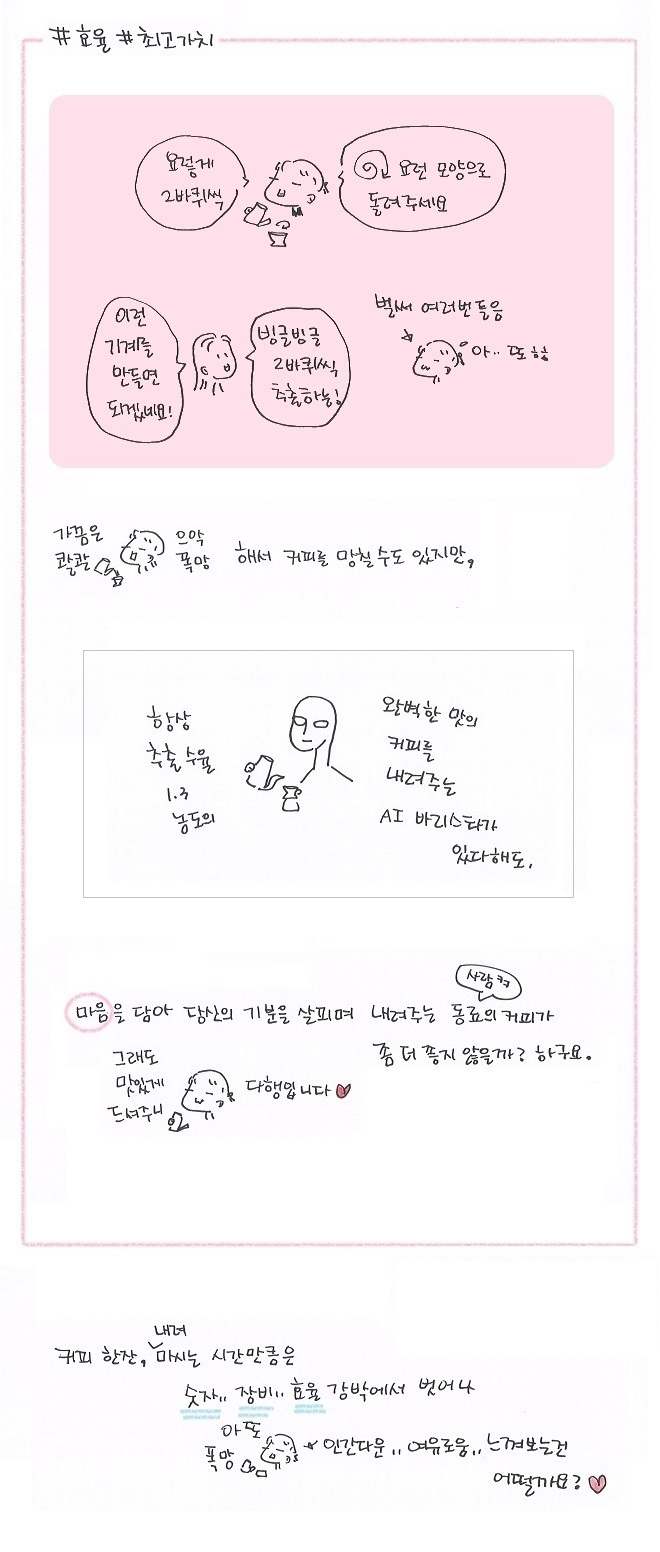 #효율 #최고가치
요렇게
2바퀴씩
요런 모양으로
돌려주세요
이런
기계를
만들면
되겠네요!
빙글빙글
2바퀴씩
추출하는!
벌써 여러번 들음
아.. 또 ㅎㅎ
가끔은
콸콸
으악
폭망
해서 커피를 망칠수도 있지만,
항상
추출 수율
1.3
농도의
완벽한 맛의
커피를
내려주는
AI 바리스타가
있다해도,
사람 ver
마음을 담아 당신의 기분을 살피며 내려주는 동료의 커피가
좀 더 좋지 않을까? 하구요.
그래도
맛있게
드셔주니
다행입니다
커피 한잔, 내려 마시는 시간만큼은
숫자.. 장비.. 효율 강박에서 벗어나
아 또
폭망
인간다운.. 여유로움.. 느껴보는건
어떨까요?